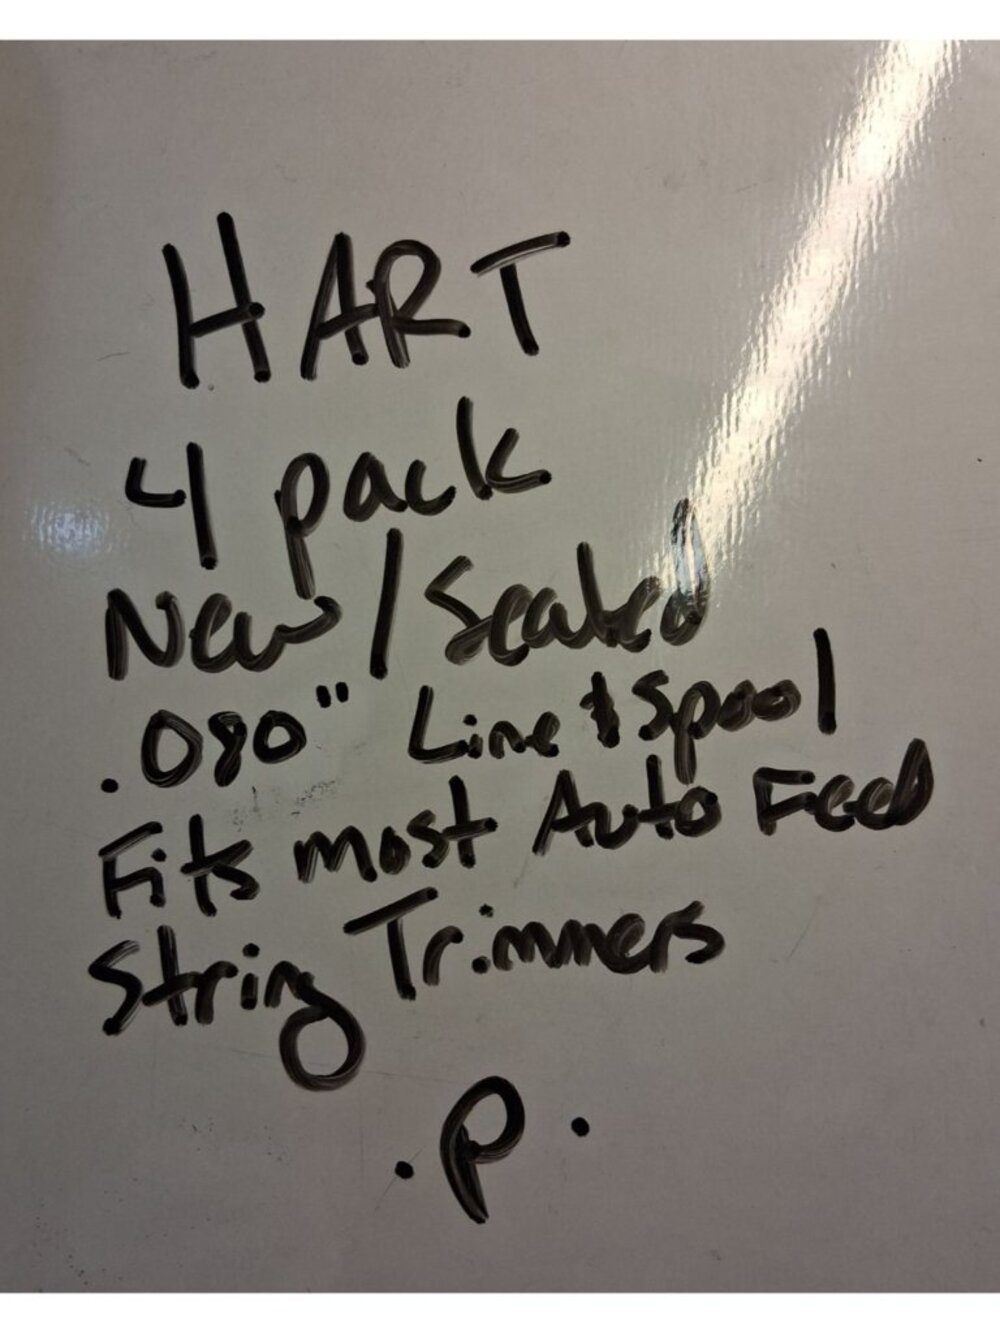 HART
4 pack
New/Sealed
.080" Line & Spool
Fits most Auto Feed
String Trimmers
.P.